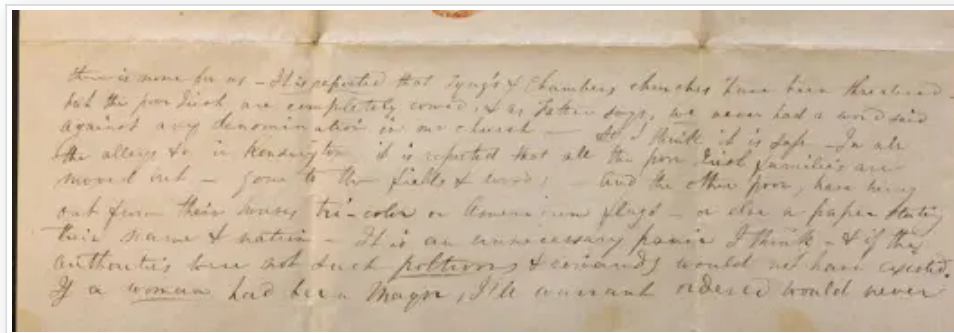 there is none for us – It is reported that Tyng's & Chambers churches have been threatened –
but the poor Irish are completely cowed, & as Father says, we never had a word said
against any denomination in our church – So I think it is safe – In all
the alleys &c in Kensington it is reported that all the poor Irish families are
moved out – gone to the fields & woods, – and the other poor, have hung
out from their houses tri-color or American flags – or else a paper stating
their name & nation – It is an unnecessary panic I think – & if the
authorities were not such poltroons & cowards would not have existed.
If a woman had been Mayor, I'll warrant would never